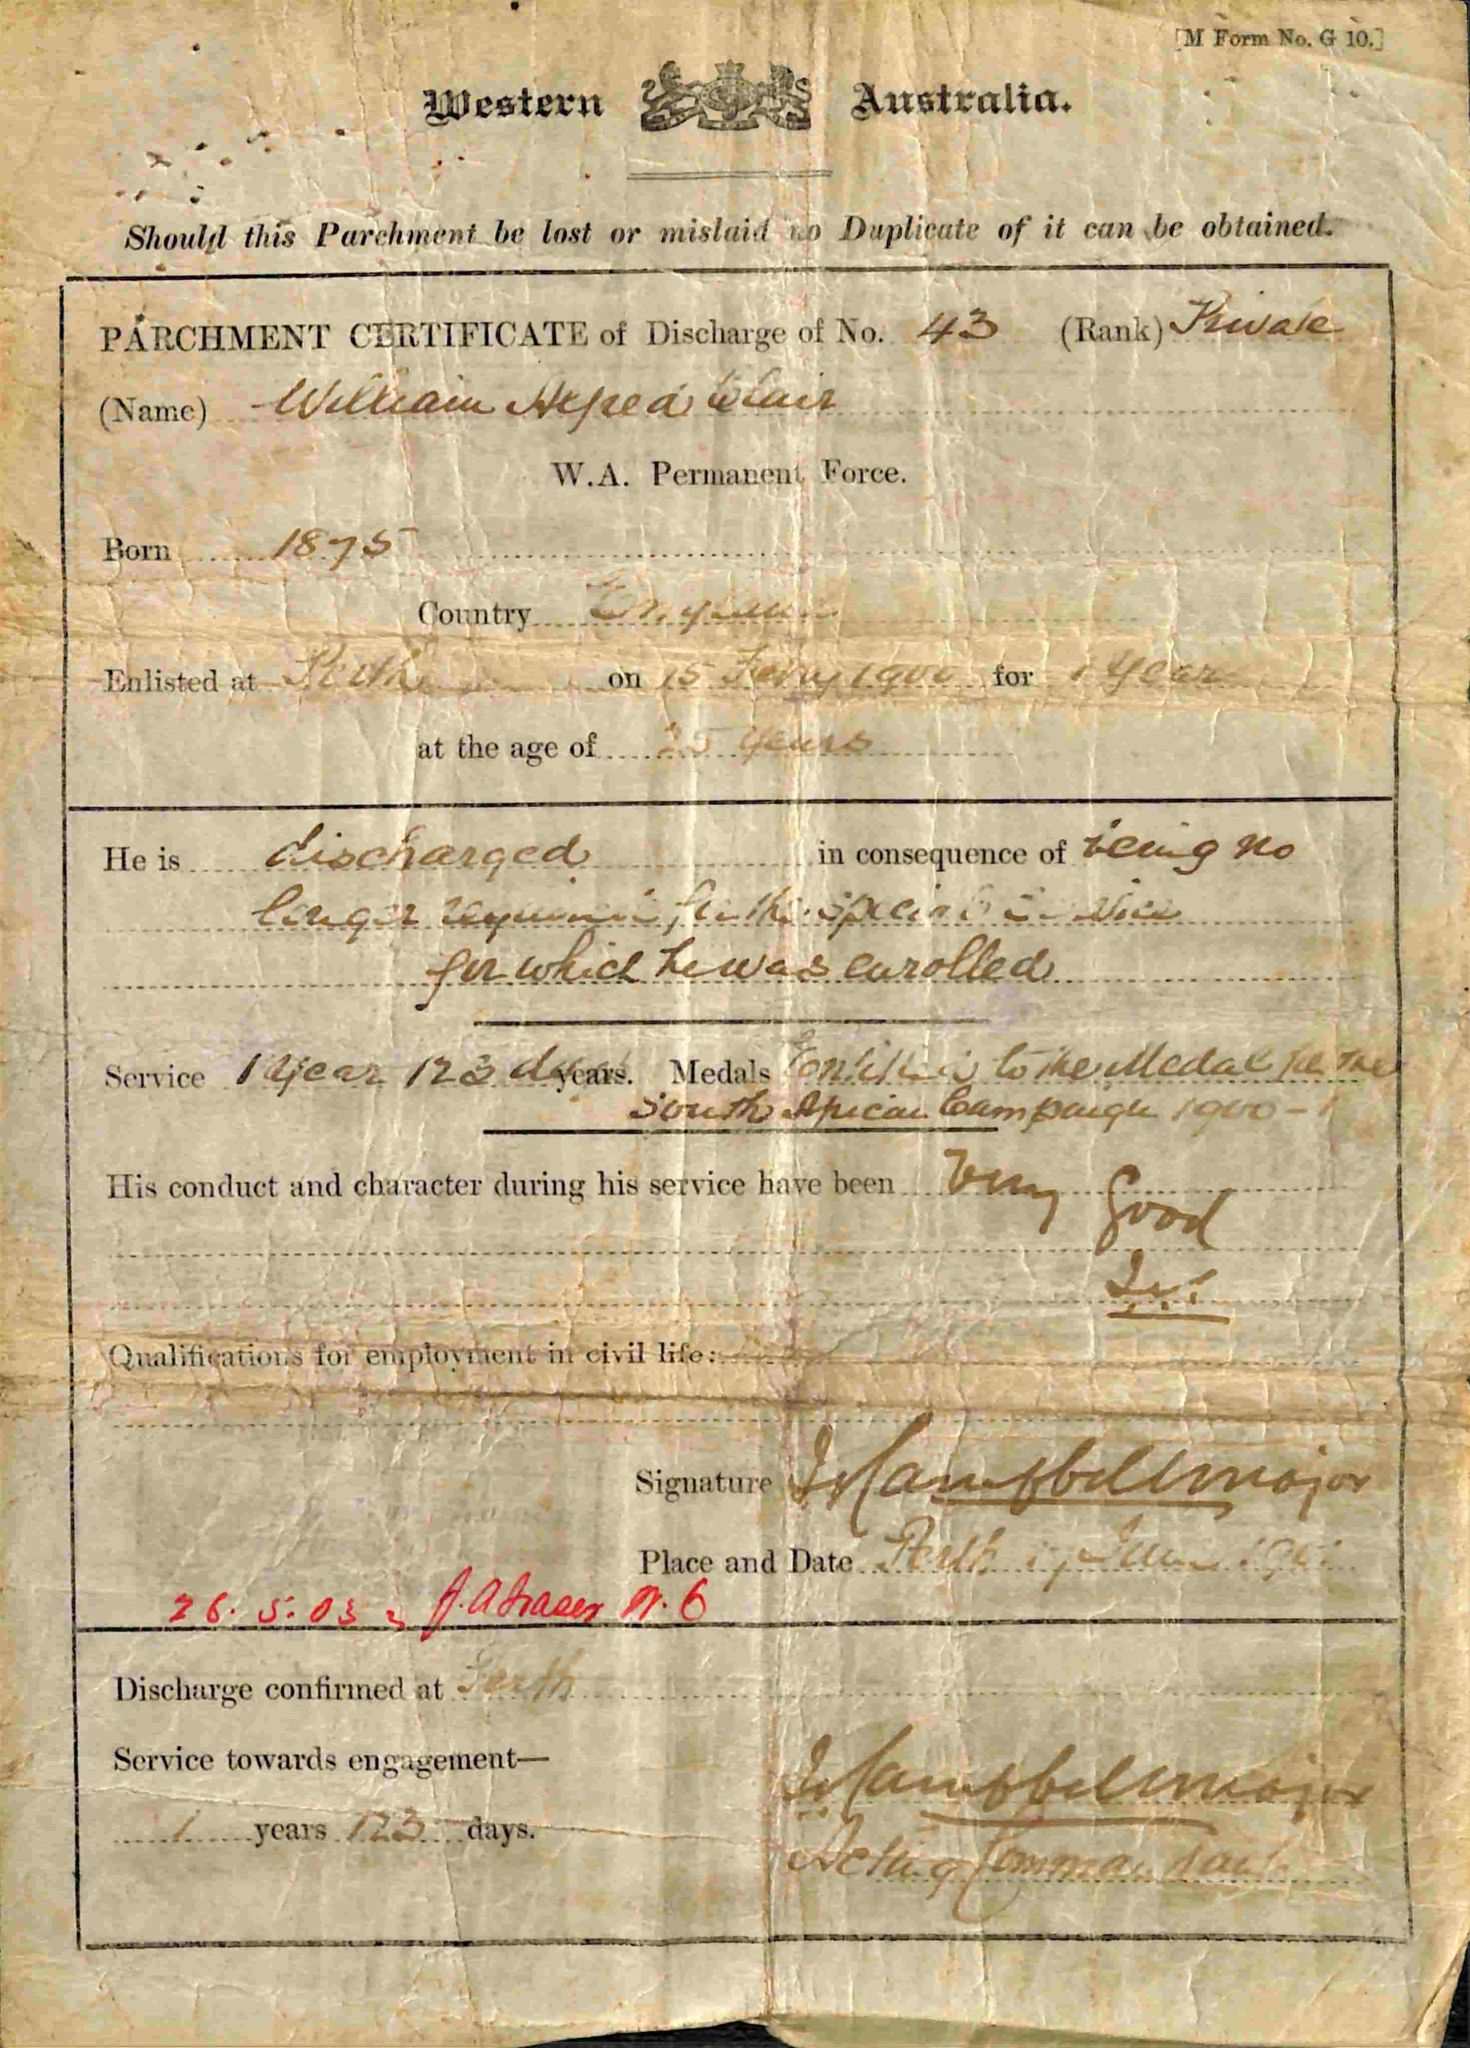 [M Form No. G 10.]
Western Australia.
Should this Parchment be lost or mislaid no Duplicate of it can be obtained.
PARCHMENT CERTIFICATE of Discharge of No. 43 (Rank) Private
(Name) William Alfred Clair
W.A. Permanent Force.
Born 1875
Country England
Enlisted at Perth on 15 Febry 1900 for 1 Year
at the age of 25 years
He is discharged in consequence of being no
longer required for the special service
for which he was enrolled
Service 1 Year 123 days years. Medals Entitled to the Medal for the
South African Campaign 1900-1
His conduct and character during his service have been Very
Good
Qualifications for employment in civil life:
Signature Campbell Major
Place and Date Perth 17 June 1901
26.5.03
Discharge confirmed at Perth
Service towards engagement—
Campbell Major
1 years 123 days.
Acting Commandant